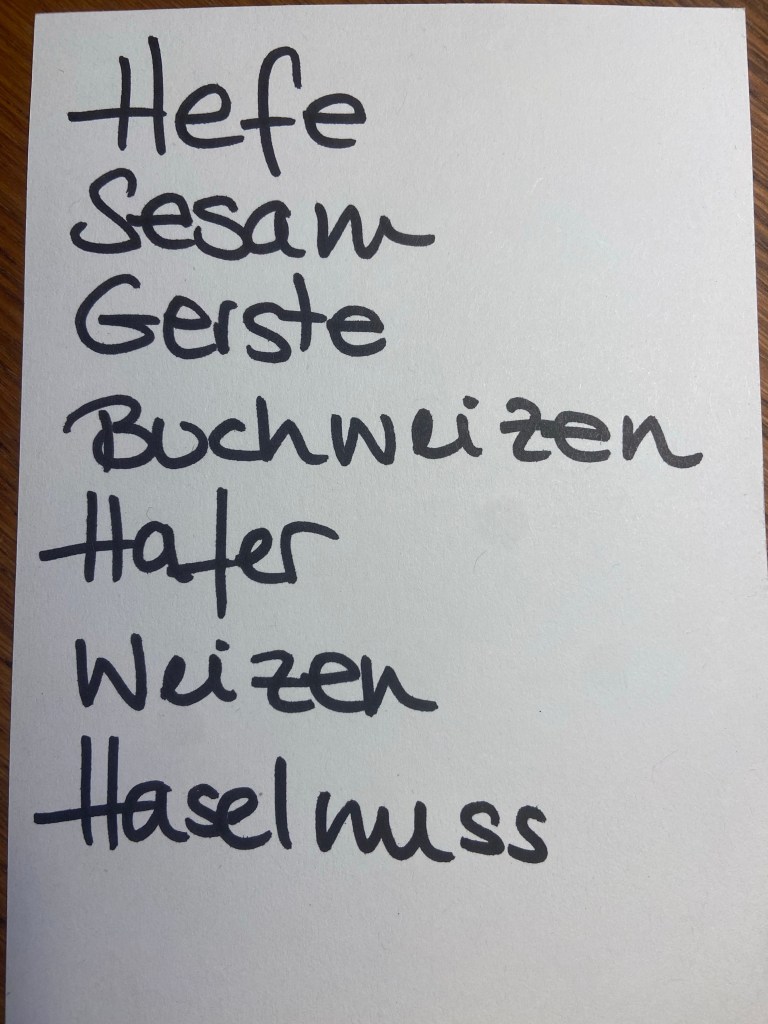 Hefe
Sesam
Gerste
Buchweizen
Hafer
Weizen
Haselnuss